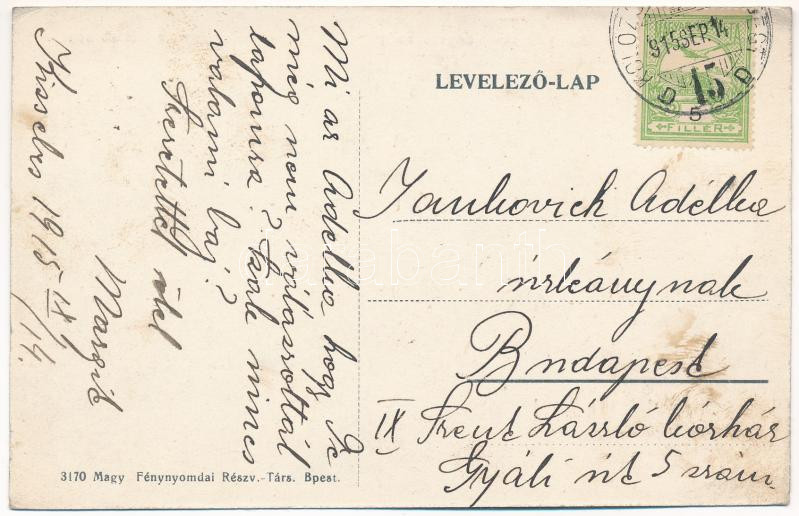 LEVELEZŐ-LAP
915 SEP. 14
15
FILLER
5
Jankovich Adélka
úrleánynak
Budapest
IX Szent László kórház
Gyáli út 5 szám
Mi az Adélka hogy Te
még nem válaszoltál
lapomra? Csak nincs
valami baj?
Szeretettel ölel
Margit
1915 IX/14.
3170 Magy Fénynyomdai Részv.-Társ. Bpest.